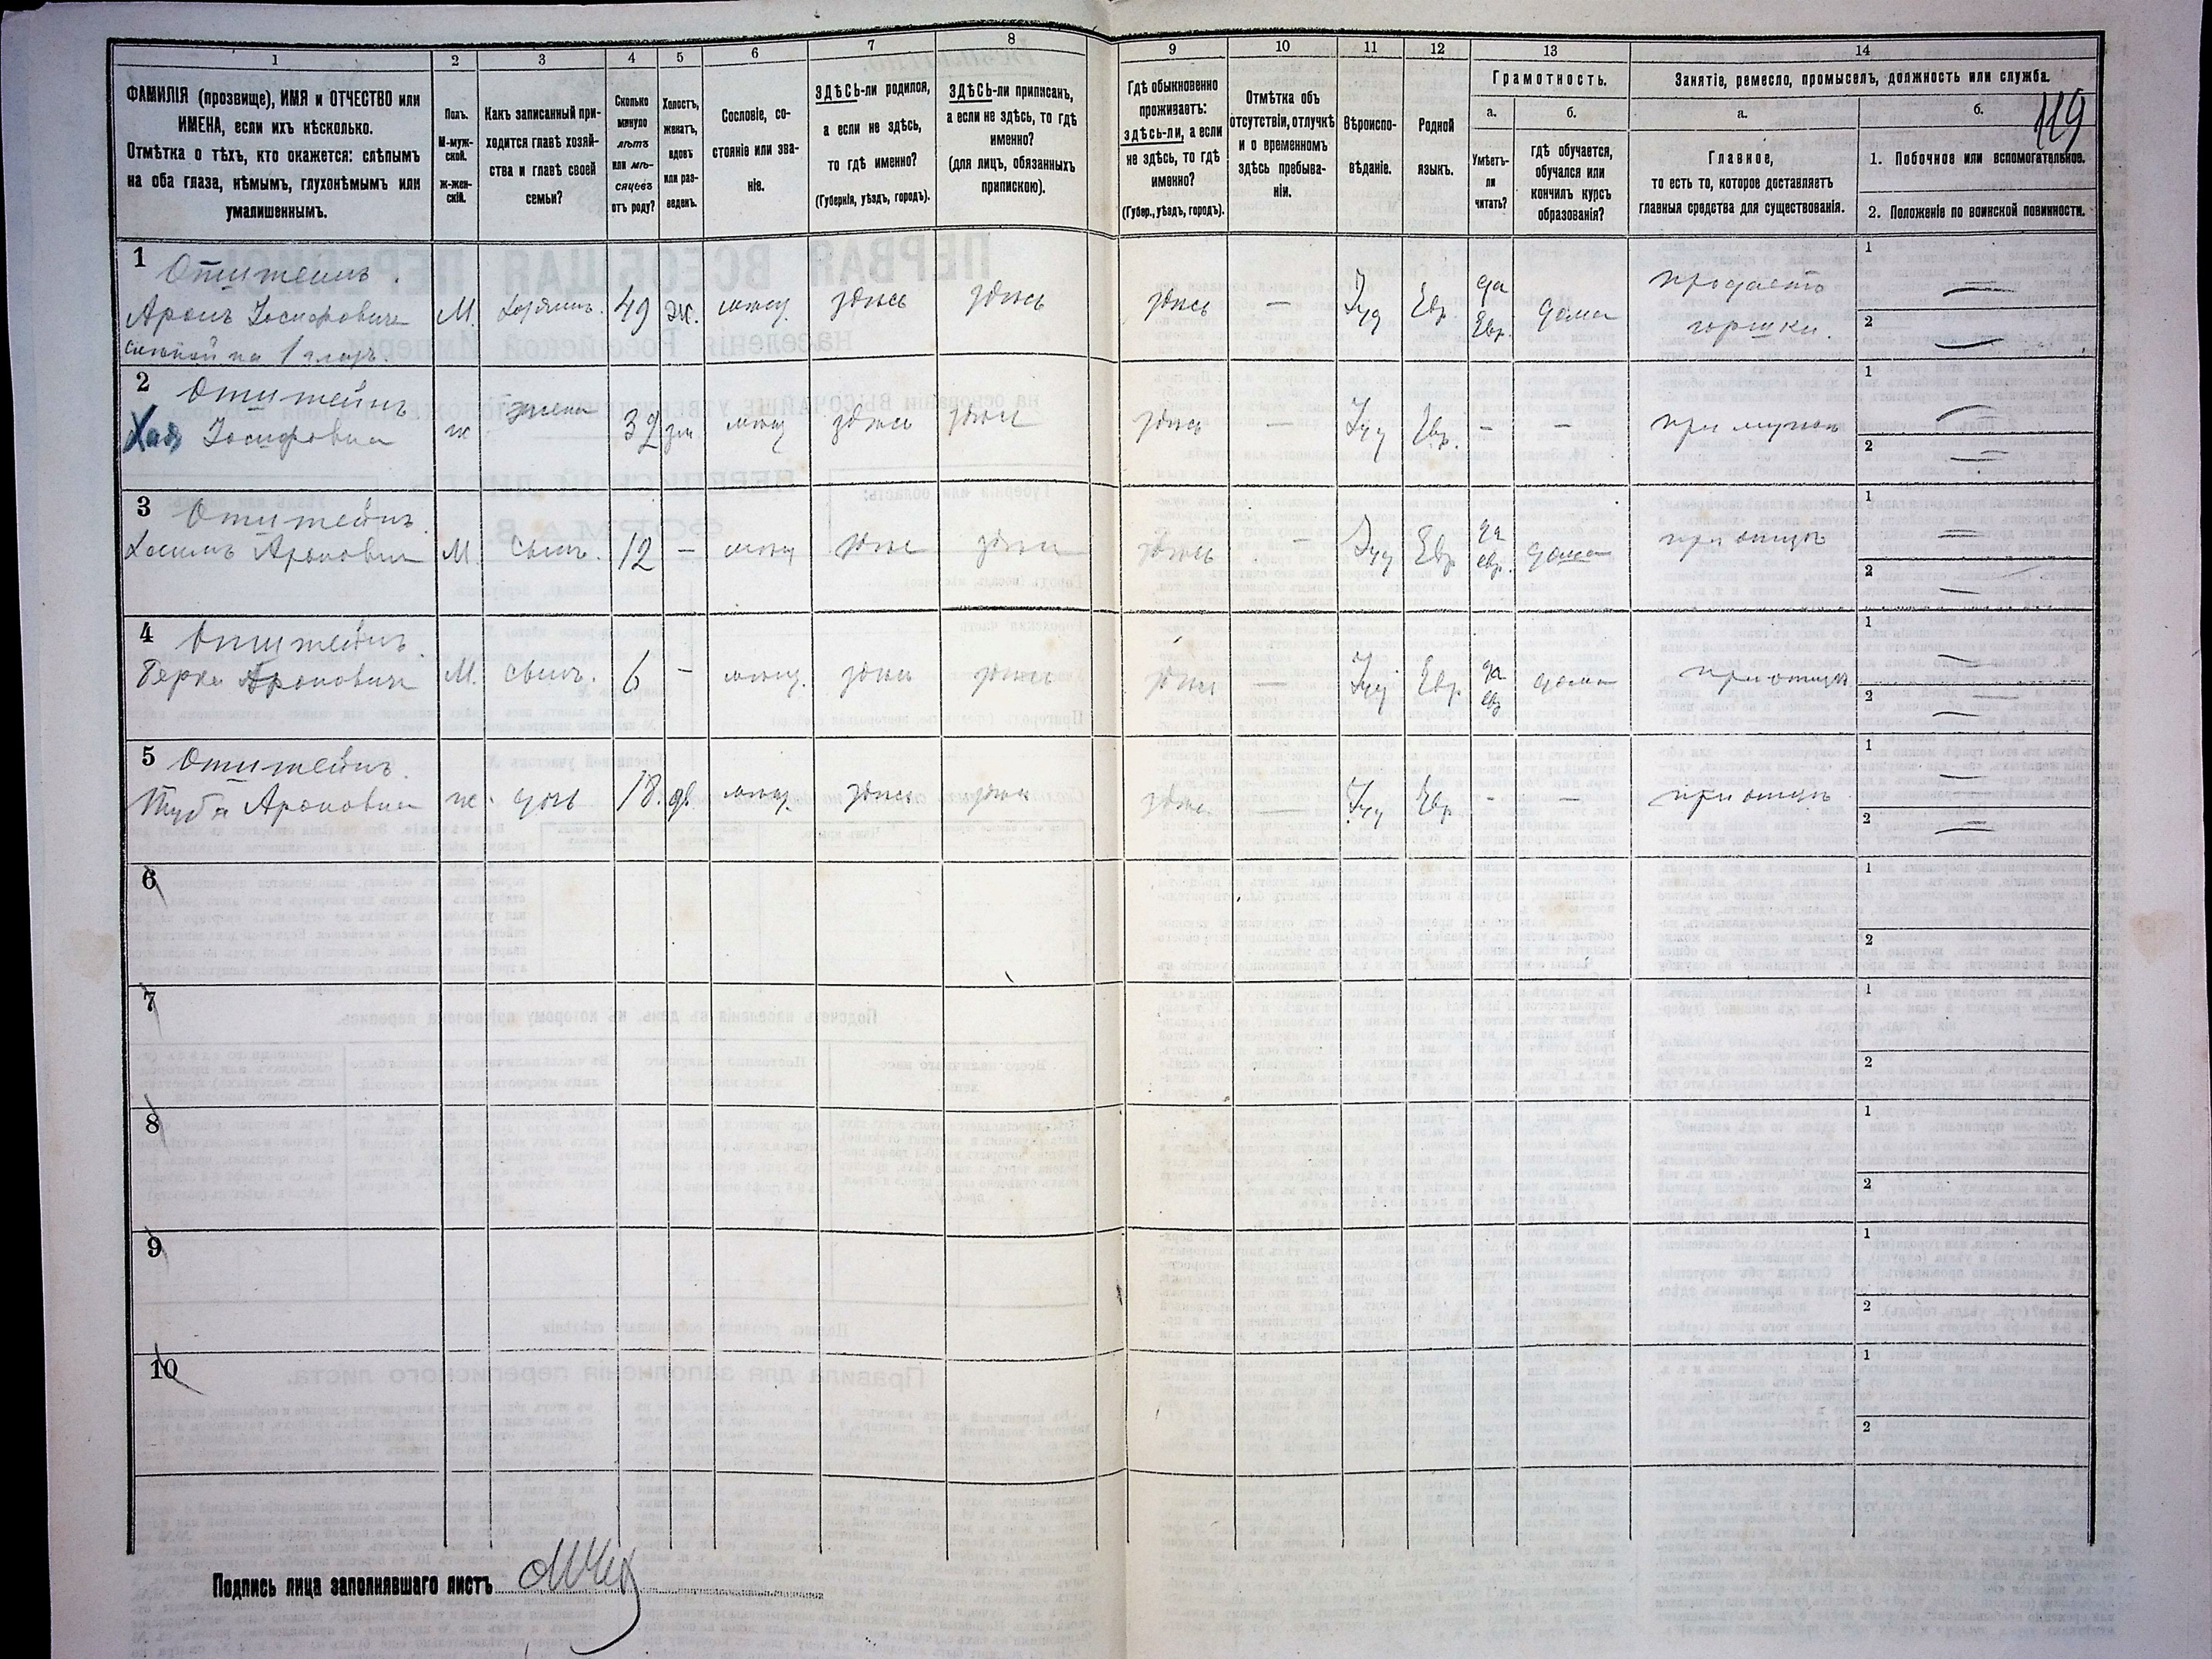 1 2 3 4 5 6 7 8 9 10 11 12 13 14
ФАМИЛІЯ (прозвище), ИМЯ и ОТЧЕСТВО или
ИМЕНА, если ихъ нѣсколько.
Отмѣтка о тѣхъ, кто окажется: слѣпымъ
на оба глаза, нѣмымъ, глухонѣмымъ или
умалишеннымъ.
Полъ.
М-муж-
ской.
ж-жен-
скій.
Какъ записанный при-
ходится главѣ хозяй-
ства и главѣ своей
семьи?
Сколько
минуло
лѣтъ
или мѣ-
сяцевъ
отъ роду?
Холостъ,
женатъ,
вдовъ
или раз-
веденъ.
Сословіе, со-
стояніе или зва-
ніе.
ЗДѢСЬ-ли родился,
а если не здѣсь,
то гдѣ именно?
(Губернія, уѣздъ, городъ).
ЗДѢСЬ-ли приписанъ,
а если не здѣсь, то гдѣ
именно?
(для лицъ, обязанныхъ
припискою).
Гдѣ обыкновенно
проживаетъ:
здѣсь-ли, а если
не здѣсь, то гдѣ
именно?
(Губер., уѣздъ, городъ).
Отмѣтка объ
отсутствіи, отлучкѣ
и о временномъ
здѣсь пребыва-
ніи.
Вѣроиспо-
вѣданіе.
Родной
языкъ.
Грамотность.
а.
Умѣетъ-
ли
читать?
б.
гдѣ обучается,
обучался или
кончилъ курсъ
образованія?
Занятіе, ремесло, промыселъ, должность или служба.
119
а.
Главное,
то есть то, которое доставляетъ
главныя средства для существованія.
б.
1. Побочное или вспомогательное.
2. Положеніе по воинской повинности.
1
Аронъ Іосифовичъ
на 1 глазъ.
М. 49 ж. мѣщ. здѣсь здѣсь здѣсь — Іуд Евр да
Евр. дома продаетъ
горшки.
1 —
2 —
2
Хая Іосифовна
ж жена 39 зм мѣщ здѣсь здѣсь здѣсь — Іуд Евр. - - при мужѣ
1 —
2 —
3
Ароновичъ М. сынъ. 12 - мѣщ здѣсь здѣсь здѣсь - Іуд Евр да
евр. дома при отцѣ
1 —
2 —
4
Берко Ароновичъ М. сынъ. 6 - мѣщ. здѣсь здѣсь здѣсь — Іуд Евр да
евр дома при отцѣ
1 —
2 —
5
Ароновна ж. дочь 18. дѣ. мѣщ. здѣсь здѣсь здѣсь — Іуд Евр - - при отцѣ
1 —
2 —
6
1
2
7
1
2
8
1
2
9
1
2
10
1
2
Подпись лица заполнявшаго листъ